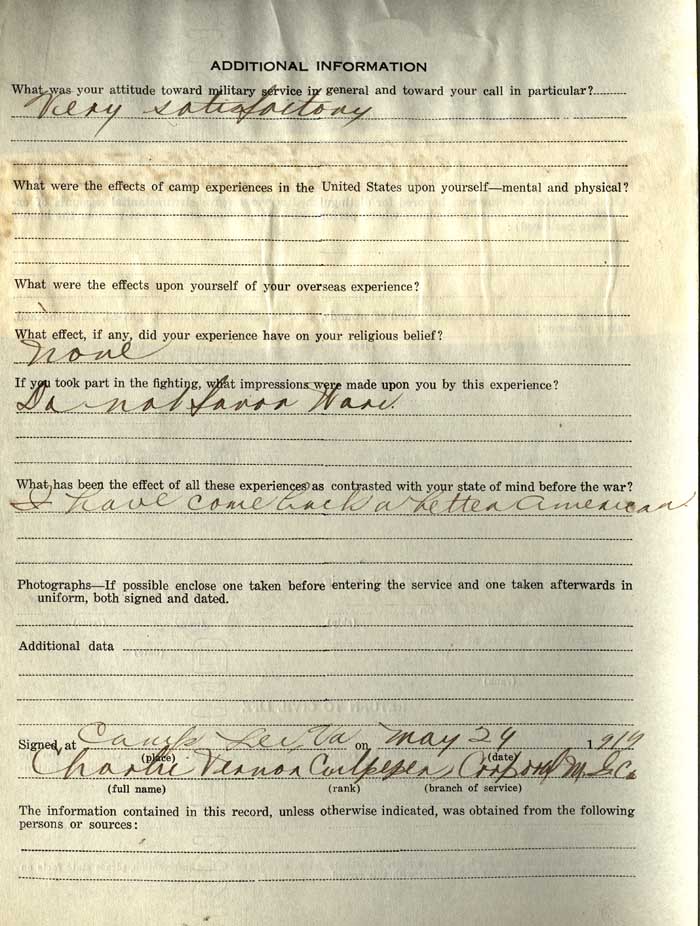 ADDITIONAL INFORMATION
What was your attitude toward military service in general and toward your call in particular?
Very satisfactory
What were the effects of camp experiences in the United States upon yourself—mental and physical?
What were the effects upon yourself of your overseas experience?
What effect, if any, did your experience have on your religious belief?
None
If you took part in the fighting, what impressions were made upon you by this experience?
Do not favor Ware.
What has been the effect of all these experiences as contrasted with your state of mind before the war?
I have come back a better American.
Photographs—If possible enclose one taken before entering the service and one taken afterwards in
uniform, both signed and dated.
Additional data
Signed, at Camp Lee, Va on May 29 1919
(place) (date)
Charlie Vernon Culpeper, Corporal M. G. Co
(full name) (rank) (branch of service)
The information contained in this record, unless otherwise indicated, was obtained from the following
persons or sources: